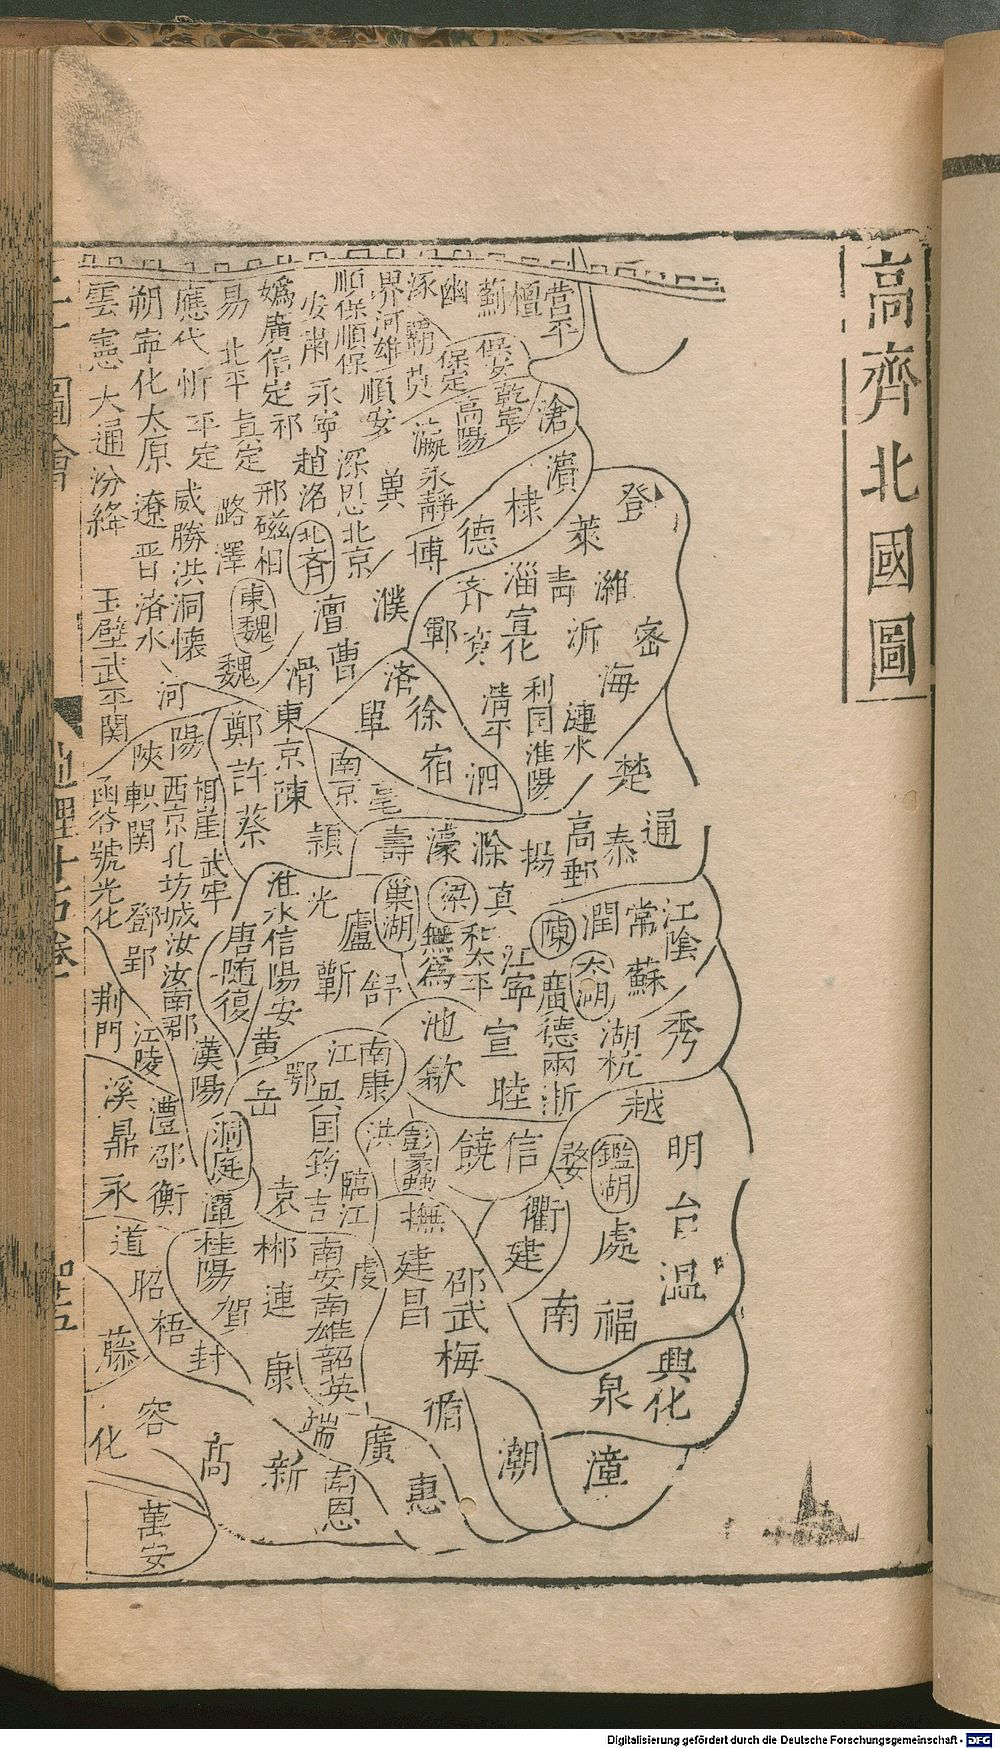 高齊北國圖
營平
檀
薊
幽
涿
界河雄
霸莫
保安
保定
順安
順保順保
安肅
永寧
嬀廣信定祁
易
北平真定
應代忻平定
朔寧化太原
雲憲大通汾絳
乾寧
高陽
滄
瀛永靜
濱
棣
德
博
冀
深
北京
趙洺
邢磁相
潞澤
威勝洪洞懷
遼晉
濟水
北齊
東魏
魏
澶
濮
曹
滑
玉壁武平關
登
萊
濰
密
青
沂
淄
宣化
齊
兗
鄆
海
漣水
利國淮陽
清平
濟
單
徐
宿
泗
南京
亳
東京陳
鄭
許
蔡
潁
河
陽
陝軹關
西京孔坊城汝汝南郡
柏崖
武牢
函谷號光化
鄧郢
楚
通
泰
高郵
揚
滁
濠
壽
真
梁
巢湖
無爲
和太平
江寧
陳
潤
常
江陰
蘇
太湖
廣德兩浙
湖杭
秀
宣
睦
池
歙
光
廬
舒
蘄
淮水信陽安
黃
唐隨復
漢陽
荆門
江陵
南康
江
鄂
岳
興国筠吉
臨江
袁
洪
彭蠡
饒
信
婺
越
明
台
溫
鑑湖
處
衢
建
南
福
興化
泉
漳
潮
撫
建昌
邵武
梅
循
惠
廣
端
南恩
新
高
康
連
郴
南安南雄韶英
虔
桂陽
賀
封
洞庭
潭
澧邵衡
溪鼎永
道
昭
梧
藤
容
化
萬安
圖會
地理十五卷
Digitalisierung gefördert durch die Deutsche Forschungsgemeinschaft - DFG